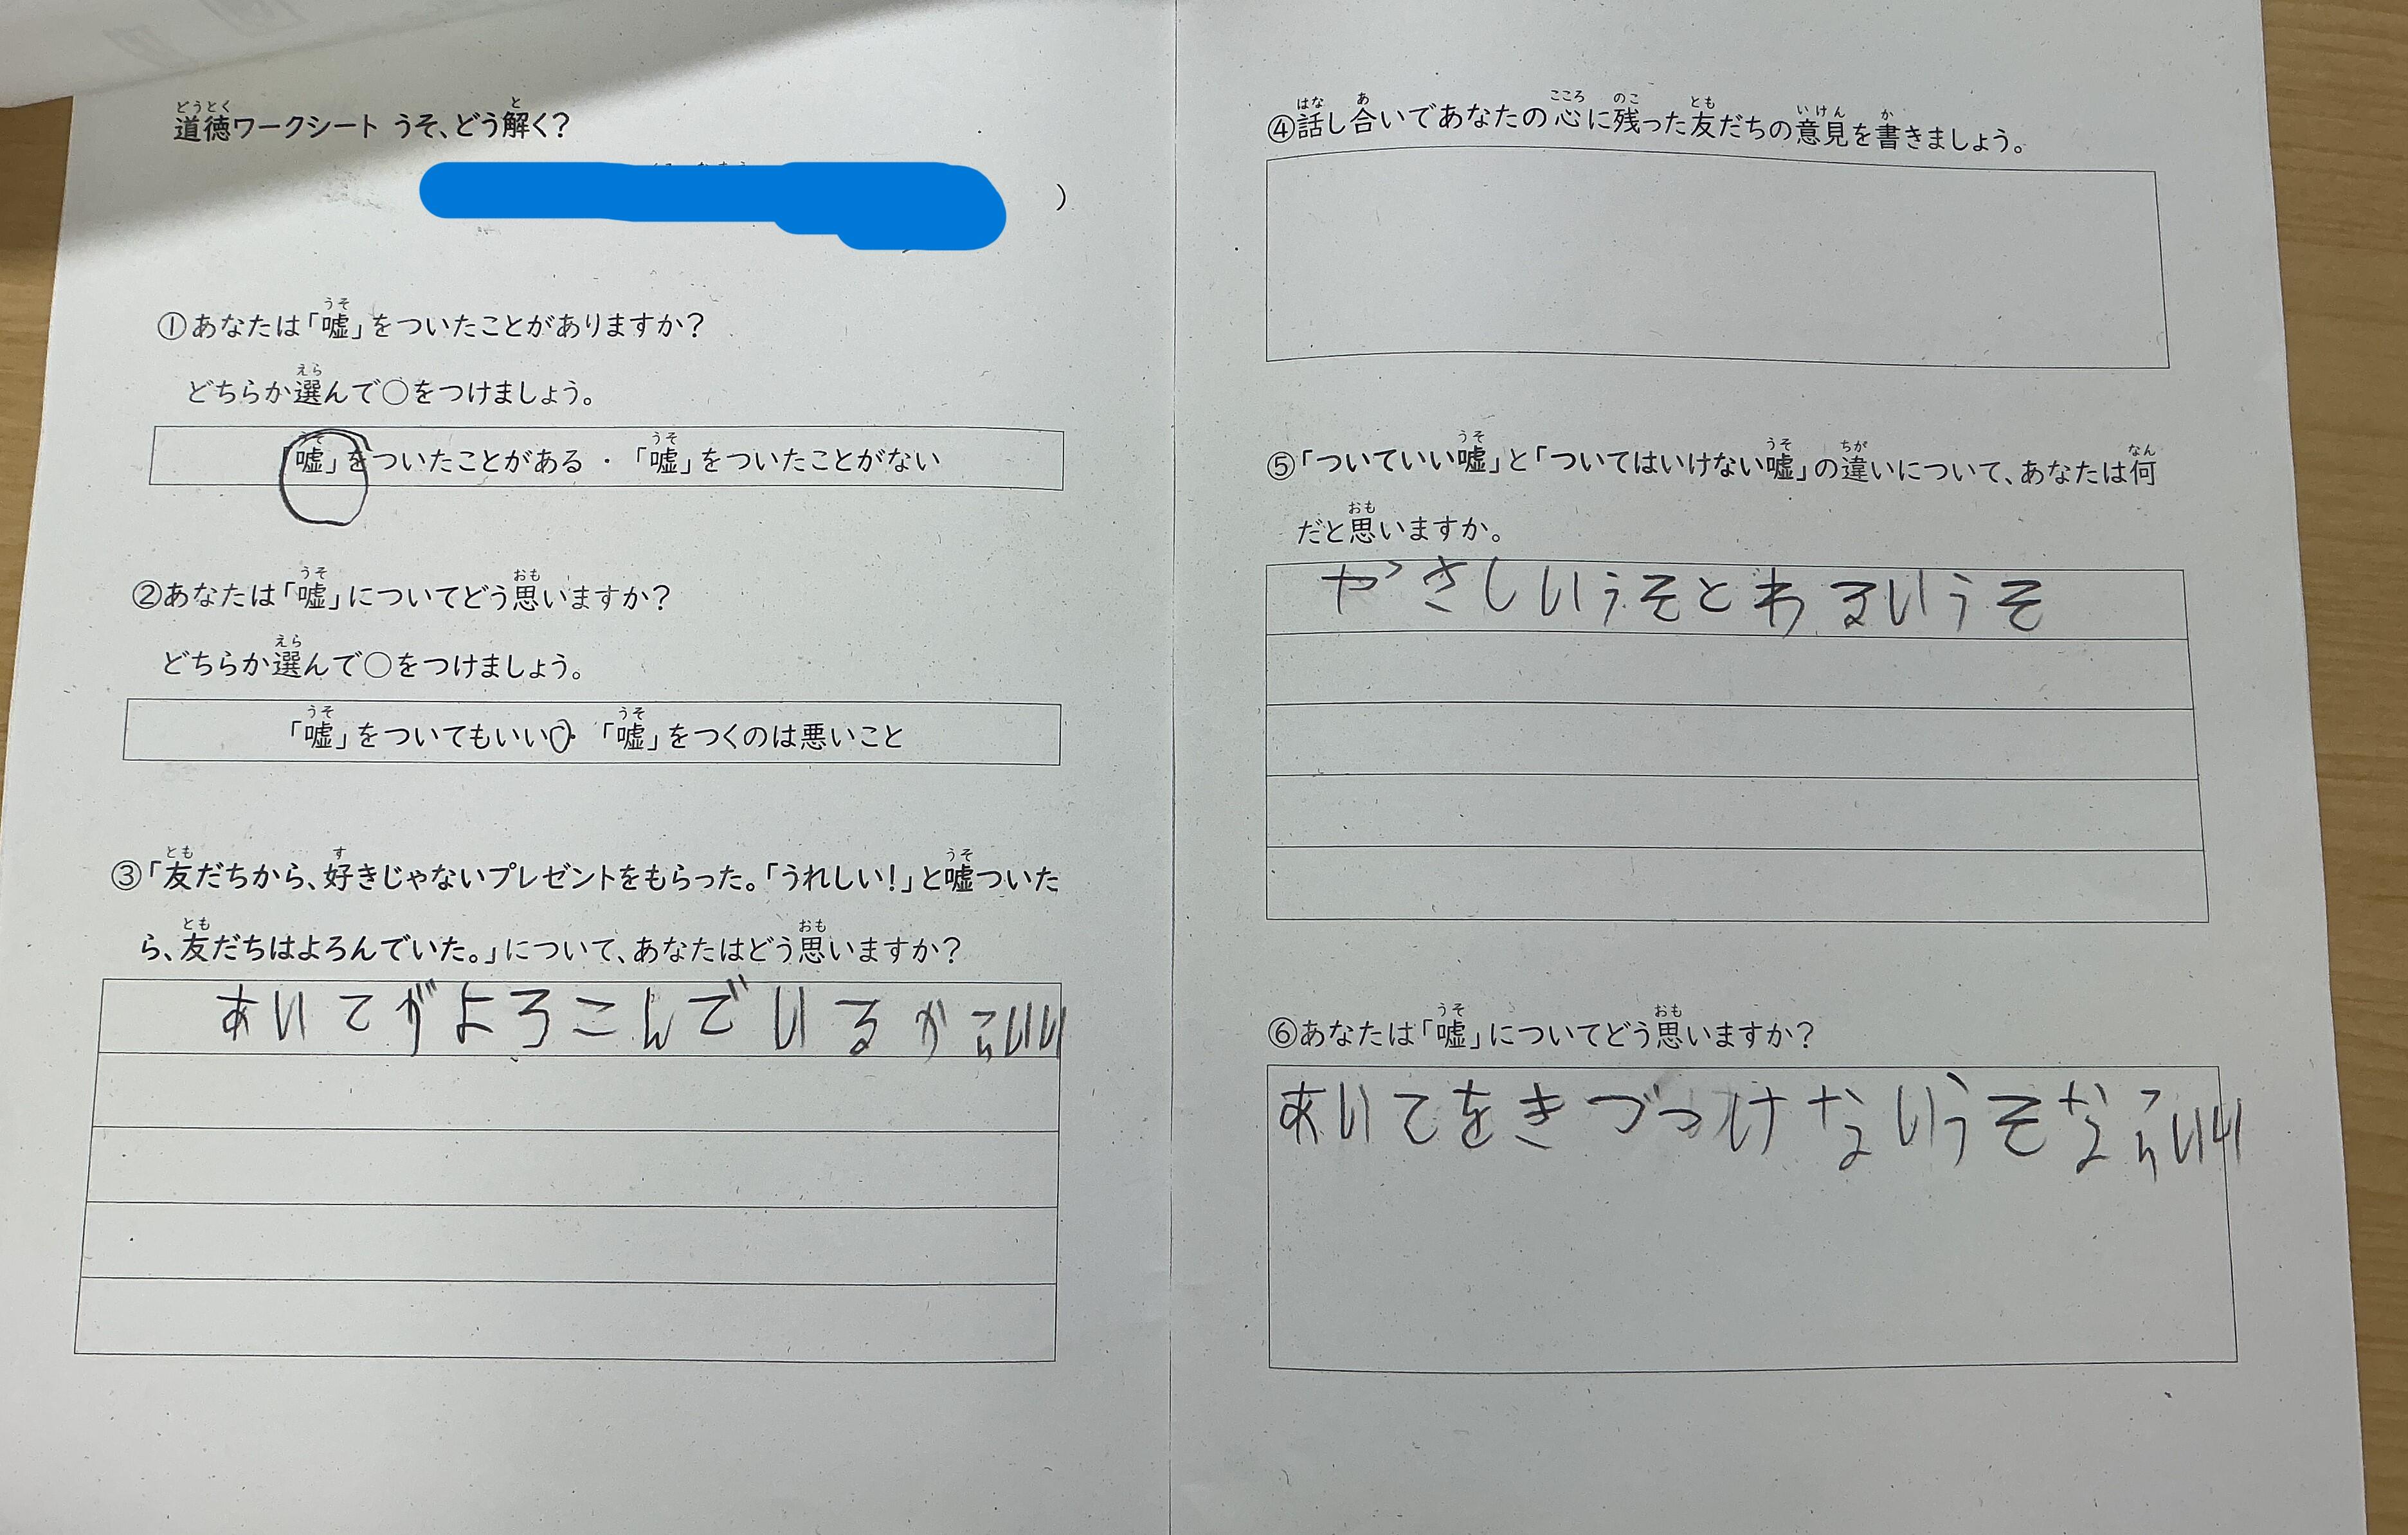 道徳ワークシート うそ、どう解く?
)
①あなたは「嘘」をついたことがありますか?
どちらか選んで○をつけましょう。
「嘘」をついたことがある ・ 「嘘」をついたことがない
②あなたは「嘘」についてどう思いますか?
どちらか選んで○をつけましょう。
「嘘」をついてもいい ・ 「嘘」をつくのは悪いこと
③「友だちから、好きじゃないプレゼントをもらった。「うれしい!」と嘘ついた
ら、友だちはよろんでいた。」について、あなたはどう思いますか?
あいてがよろこんでいるからいい
④話し合いであなたの心に残った友だちの意見を書きましょう。
⑤「ついていい嘘」と「ついてはいけない嘘」の違いについて、あなたは何
だと思いますか。
やさしいうそとわるいうそ
⑥あなたは「嘘」についてどう思いますか?
あいてをきづつけないうそならいい